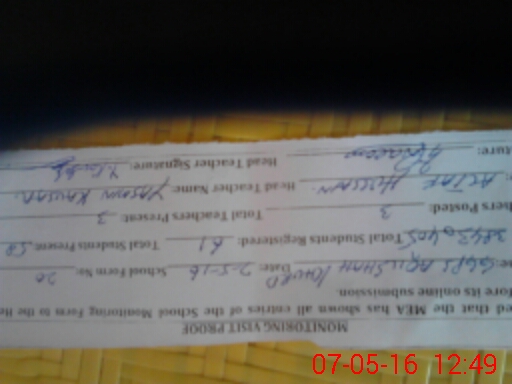 MONITORING VISIT PROOF
ed that the MEA has shown all entries of the School Monitoring Form to the He
fore its online submission.
GGPS AQILSHAH KHURD Date: 2-5-16 School Form No: 20
Total Students Registered: 61 Total Students Present: 58
hers Posted: 3 Total Teachers Present: 3
ALTAF HUSSAIN Head Teacher Name: YASMIN KAUSAR
ture: Head Teacher Signature:
07-05-16 12:49